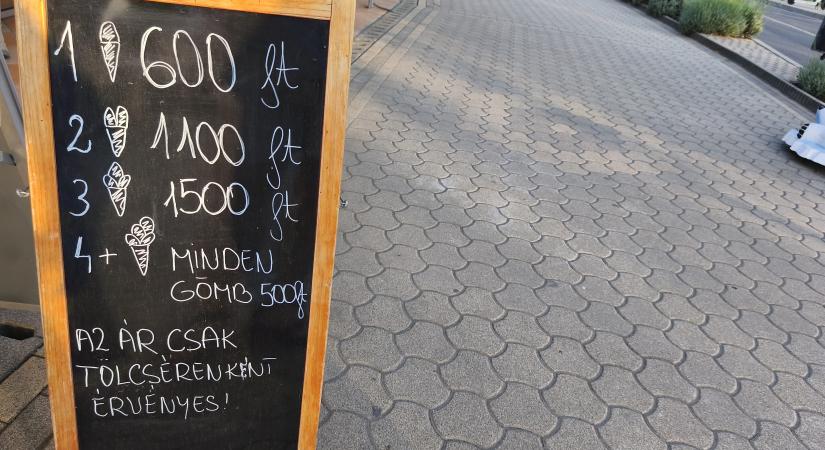 1 600 ft
2 1100 ft
3 1500 ft
4+ MINDEN
GÖMB 500ft
AZ ÁR CSAK
TÖLCSÉRENKÉNT
ÉRVÉNYES!